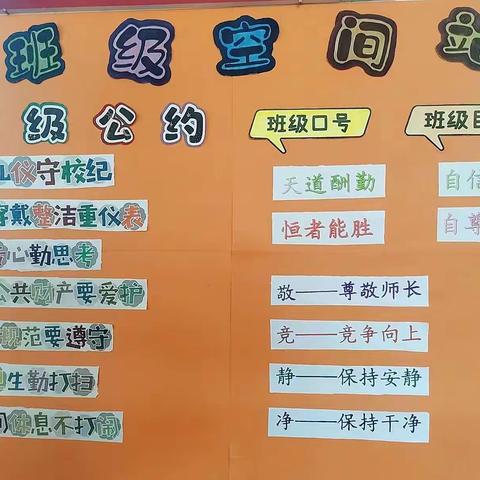 班级空间站
级公约
班级口号
班级目
仪守校纪
戴整洁重仪表
心勤思考
公共财产要爱护
规范要遵守
生勤打扫
间休息不打闹
天道酬勤
恒者能胜
敬——尊敬师长
竞——竞争向上
静——保持安静
净——保持干净
自信
自尊